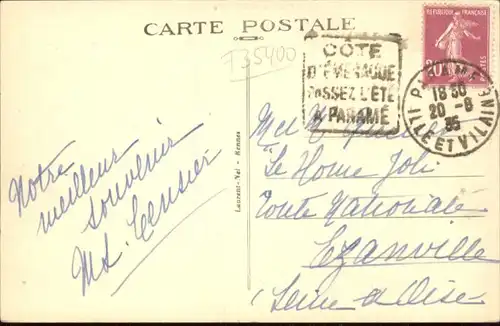 CARTE POSTALE
T35400
COTE
D'ÉMERAUDE
PASSEZ L'ÉTÉ
A PARAMÉ
REPUBLIQUE FRANÇAISE
POSTES
PARAMÉ
18 30
20 - 8
35
ILLE ET VILAINE
Notre
meilleur
souvenir
Laurent-Nel - Rennes
"Le Home Joli
Route Nationale
Ezanville
Seine & Oise